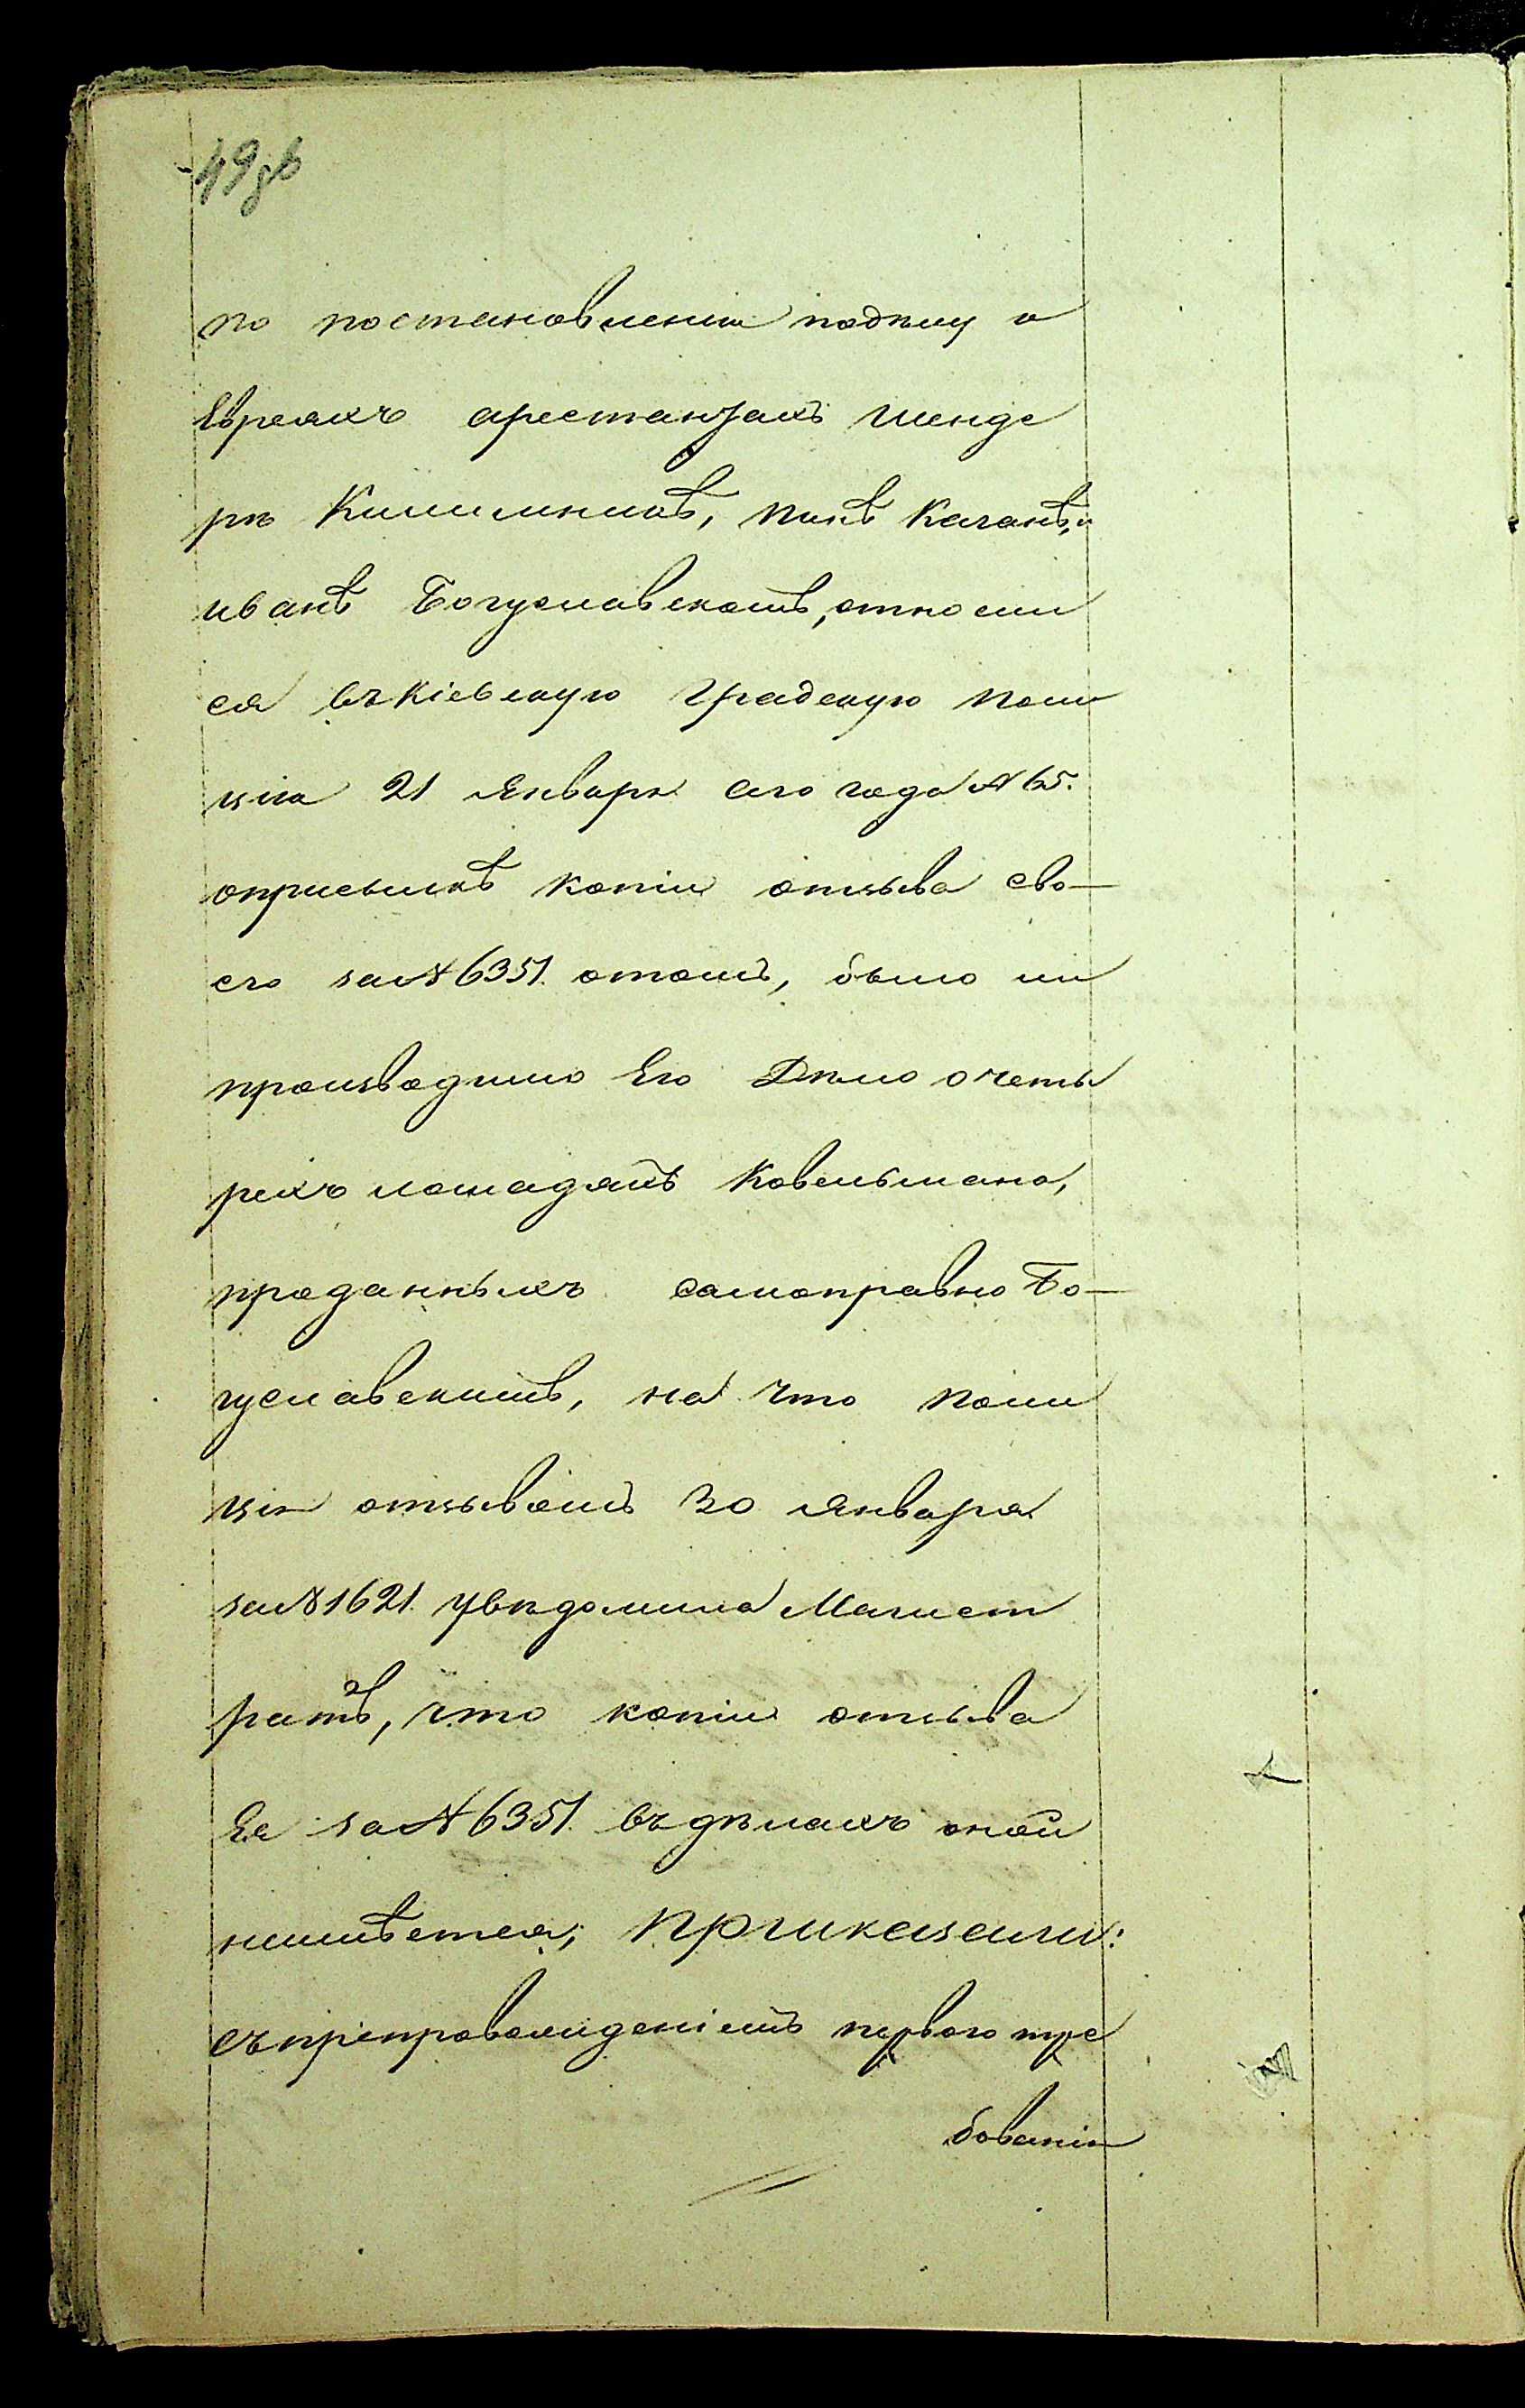 49 зв
по постановленію подѣлу о
Евреяхъ арестантахъ Шенде
рѣ Кишилникѣ, Пинѣ Каганѣ, и
иванѣ Богуславскомъ, относил
ся въ Кіевскую Градскую Поли
цію 21 Января сего года № 65.
оприсылкѣ копіи отзыва сво-
его за № 6351. отомъ, было ли
производимо Его Дѣло очеты
рехъ лошадяхъ Ковельмана,
проданныхъ самоправно Бо-
гуславскимъ, на что Поли
ція отзывомъ 30 Января
за № 1621. увѣдомила Магист
ратъ, что копіи отзыва
Ея за № 6351. въ дѣлахъ оной
неимѣется; Приказали:
съ препровожденіемъ первого тре
бованія